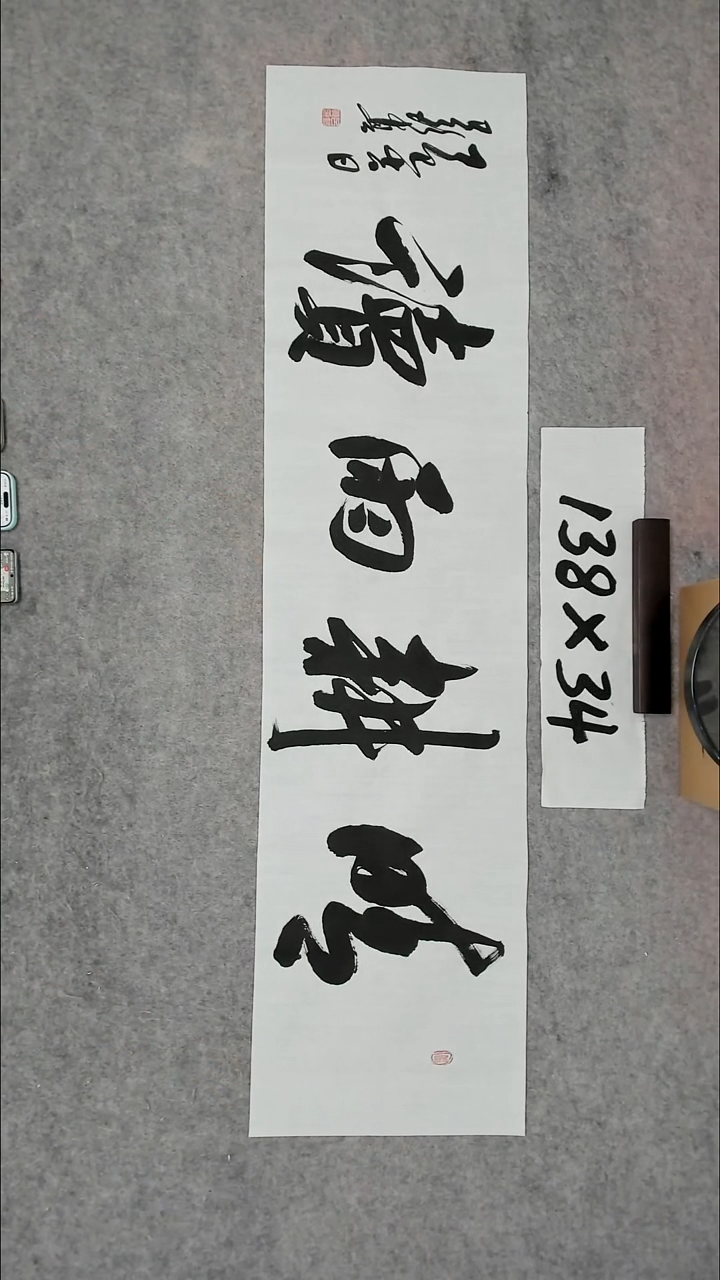 晴耕雨讀
138×34